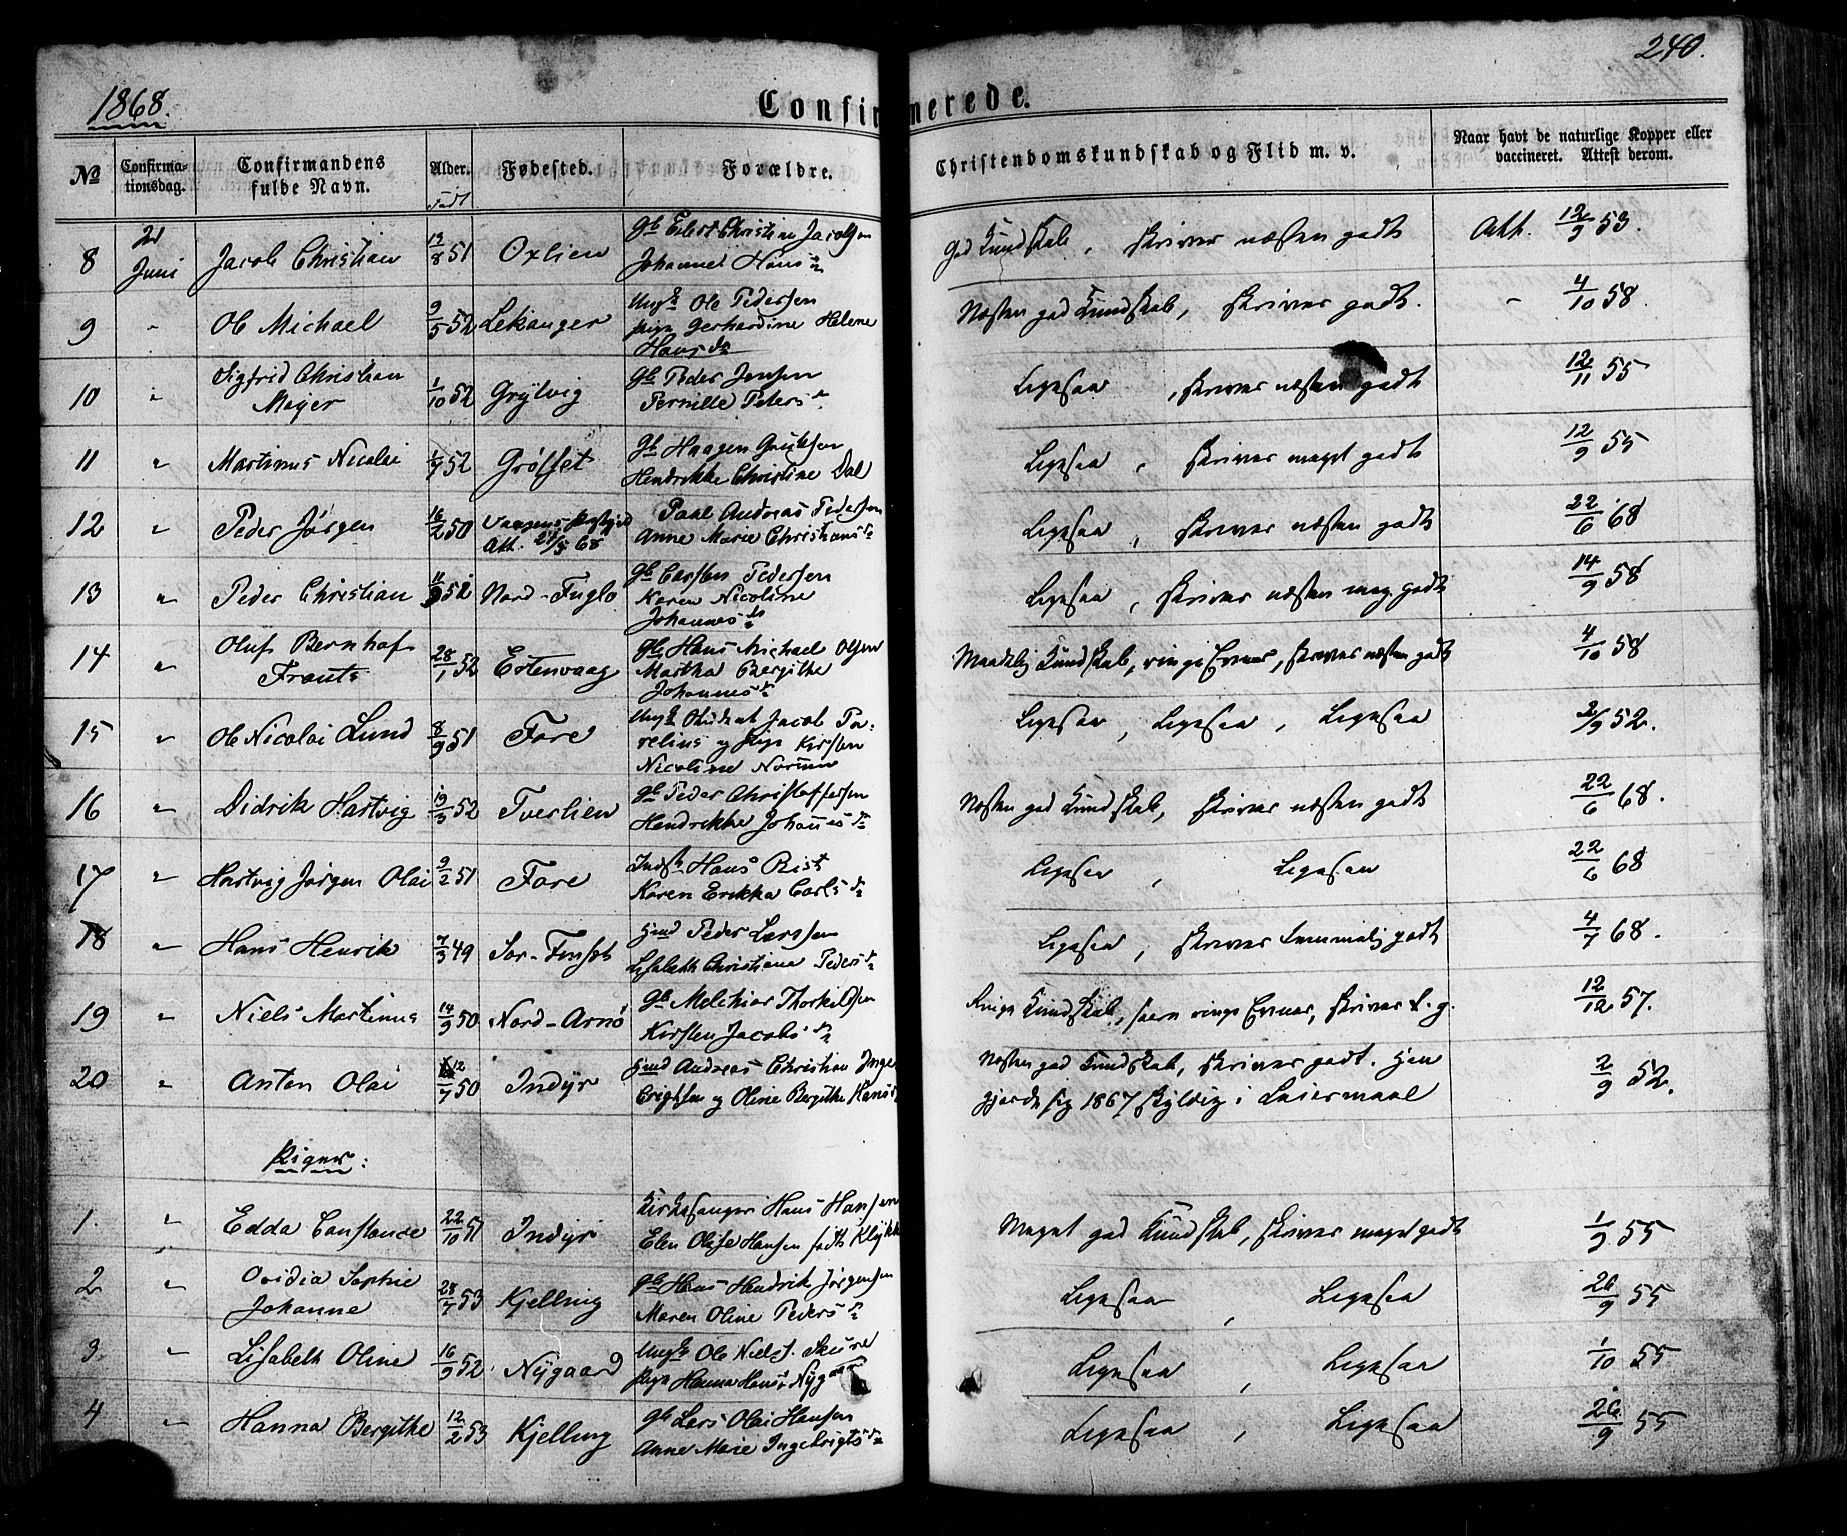 1868.
Confirmerede.
240.
No
Confirma-
tionsdag.
Confirmandens
fulde Navn.
Alder.
Født
Fødested.
Forældre.
Christendomskundskab og Flid m. v.
Naar havt de naturlige Kopper eller
vaccineret. Attest derom.
8 21 Juni Jacob Christian 12/8 51 Oxlien Gb Eilert Christian Jacobsen
Johanna Hansd. God Kundskab, skriver næsten godt Att. 12/9 53.
9 " Ole Michael 9/5 52 Lekanger Ungk Ole Pedersen
pige Gerhardine Helene
Hansd. Næsten god Kundskab, skriver godt. " 4/10 58.
10 " Sigfrid Christian
Mejer 1/10 52 Grytvig Gb Peder Jensen
Pernille Pedersd. Ligesaa, skriver næsten godt 12/11 55
11 " Martinus Nicolai 1/7 52 Grøsset Gb Haagen Gautesen
Hendrikke Christine Dal Ligesaa, skriver meget godt 12/9 55
12 " Peder Jørgen 16/2 50 Vaagens Prstgjld
Att. 27/5 68 Paul Andreas Pedersen
Anne Marie Christiansd. Ligesaa, skriver næsten godt 22/6 68
13 " Peder Christian 11/9 52 Nord-Fuglø Gb Carsten Pedersen
Karen Nicoline
Johannesd. Ligesaa, skriver næsten meg. godt 14/9 58
14 " Oluf Bernhof
Frants 28/1 52 Estenvaag Gb Hans Michael Olsen
Martha Bergithe
Johannesd. Maadelig Kundskab, ringe Evner, skriver næsten godt 4/10 58
15 " Ole Nicolai Lund 8/9 51 Fore Ungk Student Jacob Pa-
relius og pige Kirsten
Nicoline Norum Ligesaa, Ligesaa, Ligesaa 2/9 52.
16 " Didrik Hartvig 19/3 52 Tverlien Gb Peder Christoffersen
Hendrikke Johannesd. Næsten god Kundskab, skriver næsten godt 22/6 68.
17 " Hartvig Jørgen Olai 9/2 51 Fore Indst Hans Rist
Karen Erikka Carlsd. Ligesaa, Ligesaa 22/6 68
18 " Hans Henrik 7/3 49 Sør-Finset Huusmd Peder Larssen
Lisabeth Christiane Pedersd. Ligesaa, skriver temmelig godt 4/7 68.
19 " Niels Martinus 14/9 50 Nord-Arnø Gb Melchior Thorkildsen
Kirsten Jacobsd. Ringe Kundskab, især ringe Evner, skriver t. g. 12/12 57.
20 " Anton Olai 12/7 50 Indyr Huusmd Andreas Christian Inge
Erigtsen og Oline Bergithe Hansd. Næsten god Kundskab, skriver godt. Han
gjorde sig 1867 skyldig i Leiermaal 2/9 52.
Piger:
1. " Edda Constance 22/10 51 Indyr Kirkesanger Hans Hansen
Elen Olise Hansen født Klykke Meget god Kundskab, skriver meget godt 1/9 55
2 " Ovidia Sophie
Johanne 28/7 53 Kjelling Gb Hans Hendrik Jørgensen
Maren Oline Pedersd. Ligesaa, Ligesaa 26/9 55
3. " Lisabeth Oline 16/9 52 Nygaard Ungk Ole Niels. Skure
Pige Hanna Hansd. Nygaard Ligesaa, Ligesaa 1/10 55
4 " Hanna Bergithe 12/2 53 Kjelling Gb Lars Olai Hansen
Anne Marie Ingebrigtsd. Ligesaa, Ligesaa 26/9 55